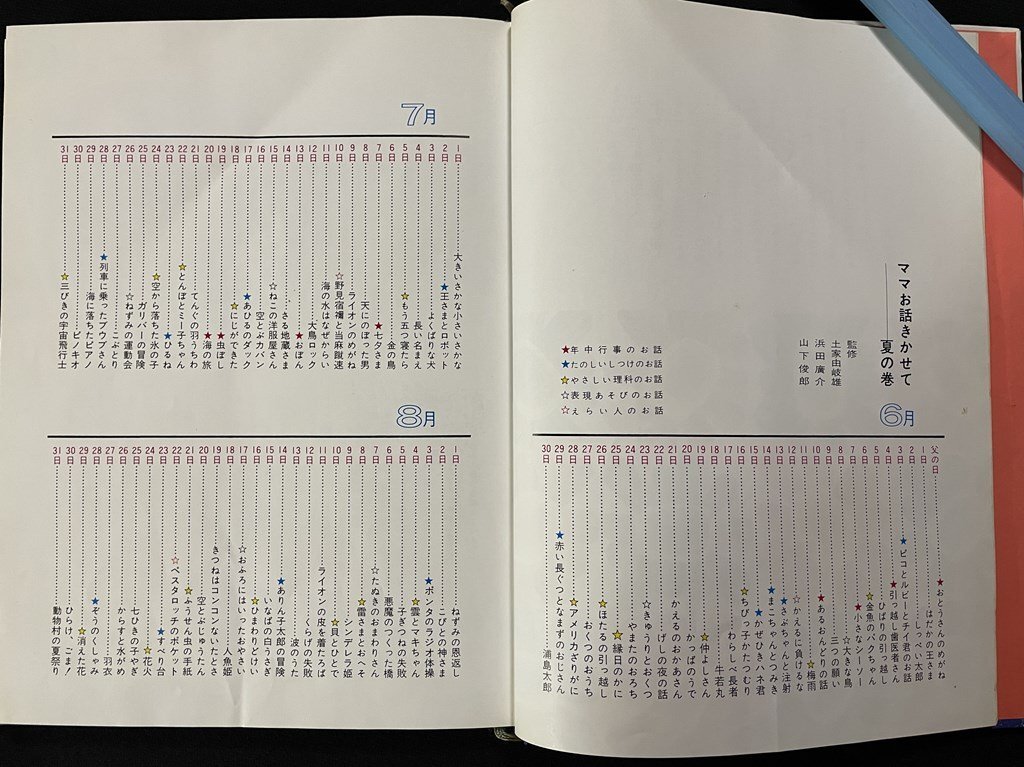 ママお話きかせて
夏の巻
監修
土家由岐雄
浜田廣介
山下俊郎
★年中行事のお話
★たのしいしつけのお話
★やさしい理科のお話
☆表現あそびのお話
☆えらい人のお話
6月
父の日 ★おとうさんのめがね
1日 はだかの王さま
2日 しっぺい太郎
3日 ★ピコとルビーとチイ君のお話
4日 ★引っ越し歯医者さん
5日 ひばりの引っ越し
6日 ★金魚のパクちゃん
7日 ★小さなシーソー
8日 ☆大きな鳥
9日 三つの願い
10日 ★あるおんどりの話
11日 ★梅雨
12日 ☆かえるに負けるな
13日 ★さぶちゃんと注射
14日 ★まちゃんとつみき
15日 ★かぜひきハネ君
16日 ★ちびっ子かたつむり
17日 わらしべ長者
18日 牛若丸
19日 ★仲よしさん
20日 かっぱのうで
21日 げしの夜の話
22日 かえるのおかあさん
23日 ☆きゅうりとおくつ
24日 やまたのおろち
25日 ★縁日のかに
26日 ★ほたるの引っ越し
27日 おくつのおうち
28日 ★アメリカざりがに
29日 ★赤い長ぐつとなまずのおじさん
30日 浦島太郎
7月
1日 大きいさかな小さいさかな
2日 ★王さまとロボット
3日 よくばりな犬
4日 長い名まえ
5日 ★もう五つ寝たら
6日 金の鳥
7日 ★七夕さま
8日 天にのぼった男
9日 ライオンのめがね
10日 ☆野見宿禰と当麻蹴速
11日 海の水はなぜからい
12日 大鳥ロック
13日 ★おぼん
14日 さる地蔵さま
15日 ☆ねこの洋服屋さん
16日 空とぶカバン
17日 ★あひるのダック
18日 ★にじができた
19日 ★虫ぼし
20日 ★海の旅
21日 てんぐの羽うちわ
22日 ★とんぼとミー子ちゃん
23日 ★ひるね
24日 ★空から落ちた氷の子
25日 ガリバーの冒険
26日 ☆ねずみの運動会
27日 こぶとり
28日 ★列車に乗ったブウブウさん
29日 海に落ちたピアノ
30日 ピノキオ
31日 ★三びきの宇宙飛行士
8月
1日 ねずみの恩返し
2日 こびとの神さま
3日 ★ポンタのラジオ体操
4日 ★雲とマキちゃん
5日 子ぎつねの失敗
6日 悪魔のつくった橋
7日 ☆たぬきのおまわりさん
8日 ★雷さまとおへそ
9日 シンデレラ姫
10日 ★貝とひとで
11日 ライオンの皮を着たろば
12日 くらげの失敗
13日 波のうた
14日 ★ありん子太郎の冒険
15日 いなばの白うさぎ
16日 ★ひまわりどけい
17日 ☆おふろにはいったおやさい
18日 人魚姫
19日 きつねはコンコンないたとさ
20日 空とぶじゅうたん
21日 ★ふうせん虫の手紙
22日 ☆ペスタロッチのポケット
23日 ★すべり台
24日 ★花火
25日 七ひきの子やぎ
26日 からすと水がめ
27日 羽衣
28日 ★ぞうのくしゃみ
29日 ★消えた花
30日 ひらけ、ごま！
31日 動物村の夏祭り